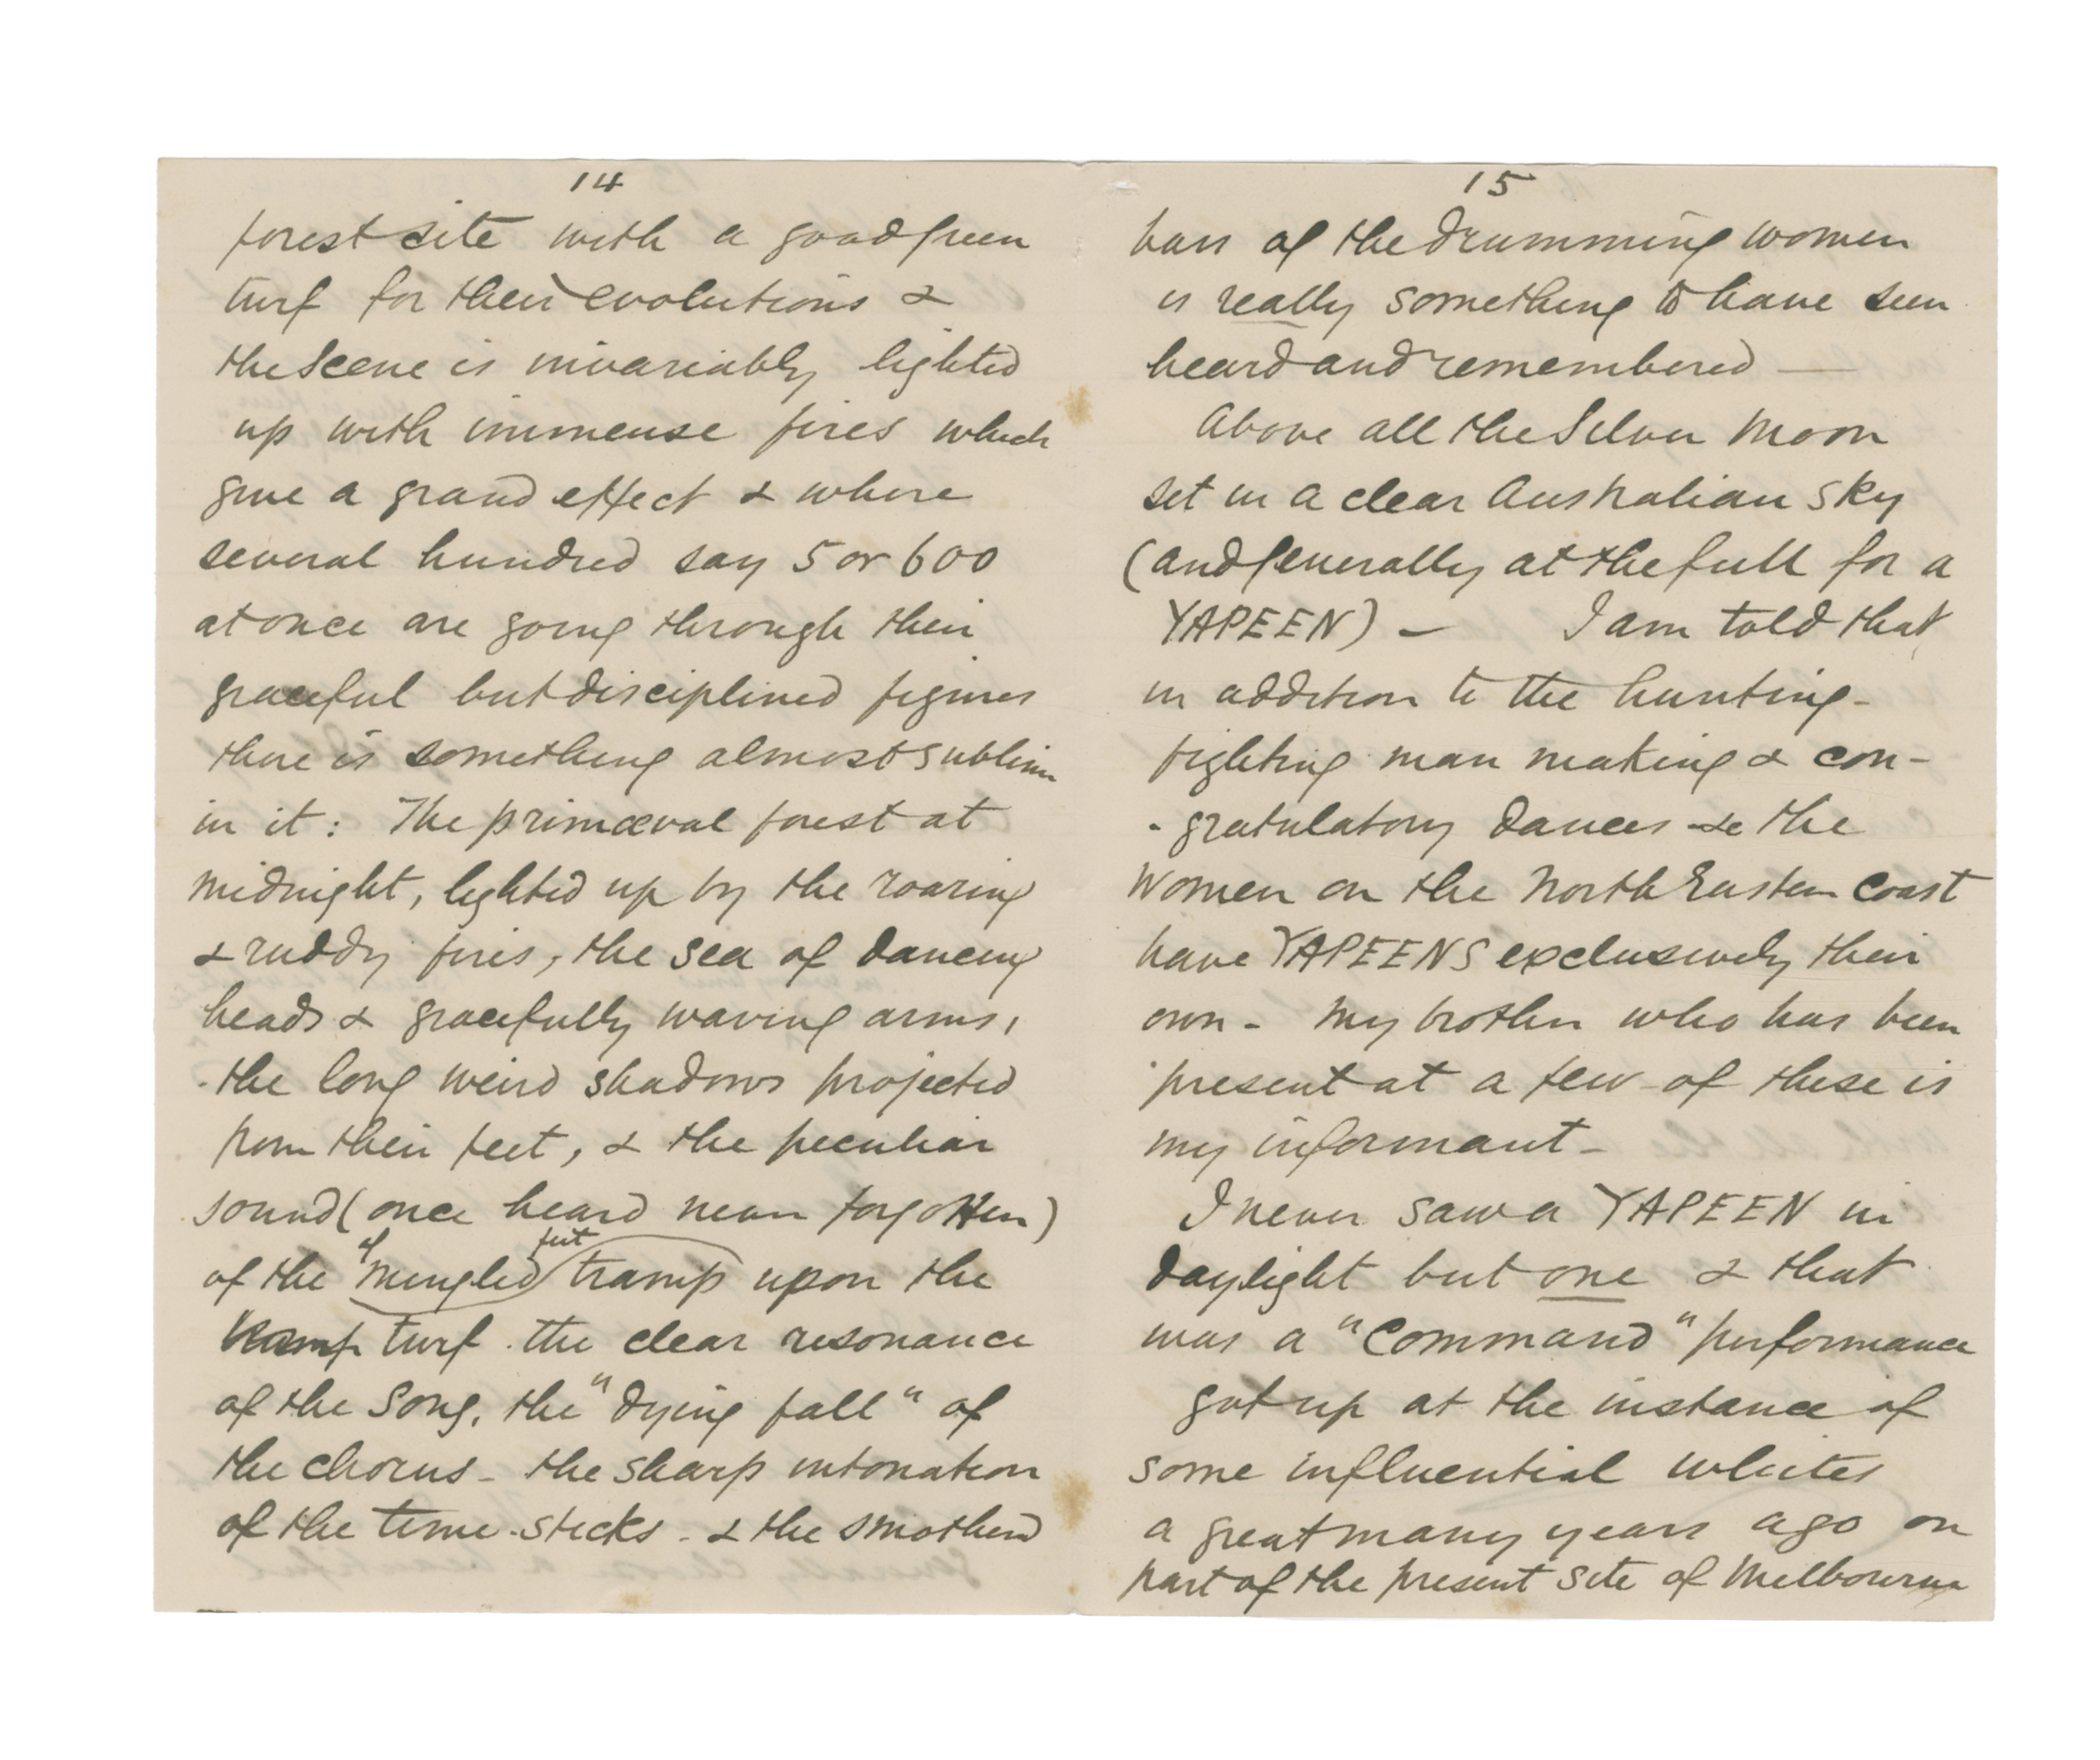 14
forest site with a good green
turf for their evolutions &
the scene is invariably lighted
up with immense fires which
give a grand effect & where
several hundred say 5 or 600
at once are going through their
graceful but disciplined figures
there is something almost sublime
in it: The primæval forest at
midnight, lighted up by the roaring
& ruddy fires, the sea of dancing
heads & gracefully waving arms,
the long weird shadows projected
from their feet, & the peculiar
sound (once heard never forgotten)
of feet
of the mingled tramp upon the
turf. the clear resonance
of the song, the "dying fall" of
the chorus - the sharp intonation
of the time-sticks - & the smothered
15
bass of the drumming women
is really something to have seen
heard and remembered —
Above all the Silver Moon
set in a clear Australian sky
(and generally at the full for a
YAPEEN) — I am told that
in addition to the hunting-
fighting man making & con-
-gratulatory dances &c the
Women on the North Eastern Coast
have YAPEENS exclusively their
own - My brother who has been
present at a few of these is
my informant -
I never saw a YAPEEN in
daylight but one & that
was a "Command" performance
got up at the instance of
some influential whites
a great many years ago on
part of the present site of Melbourne